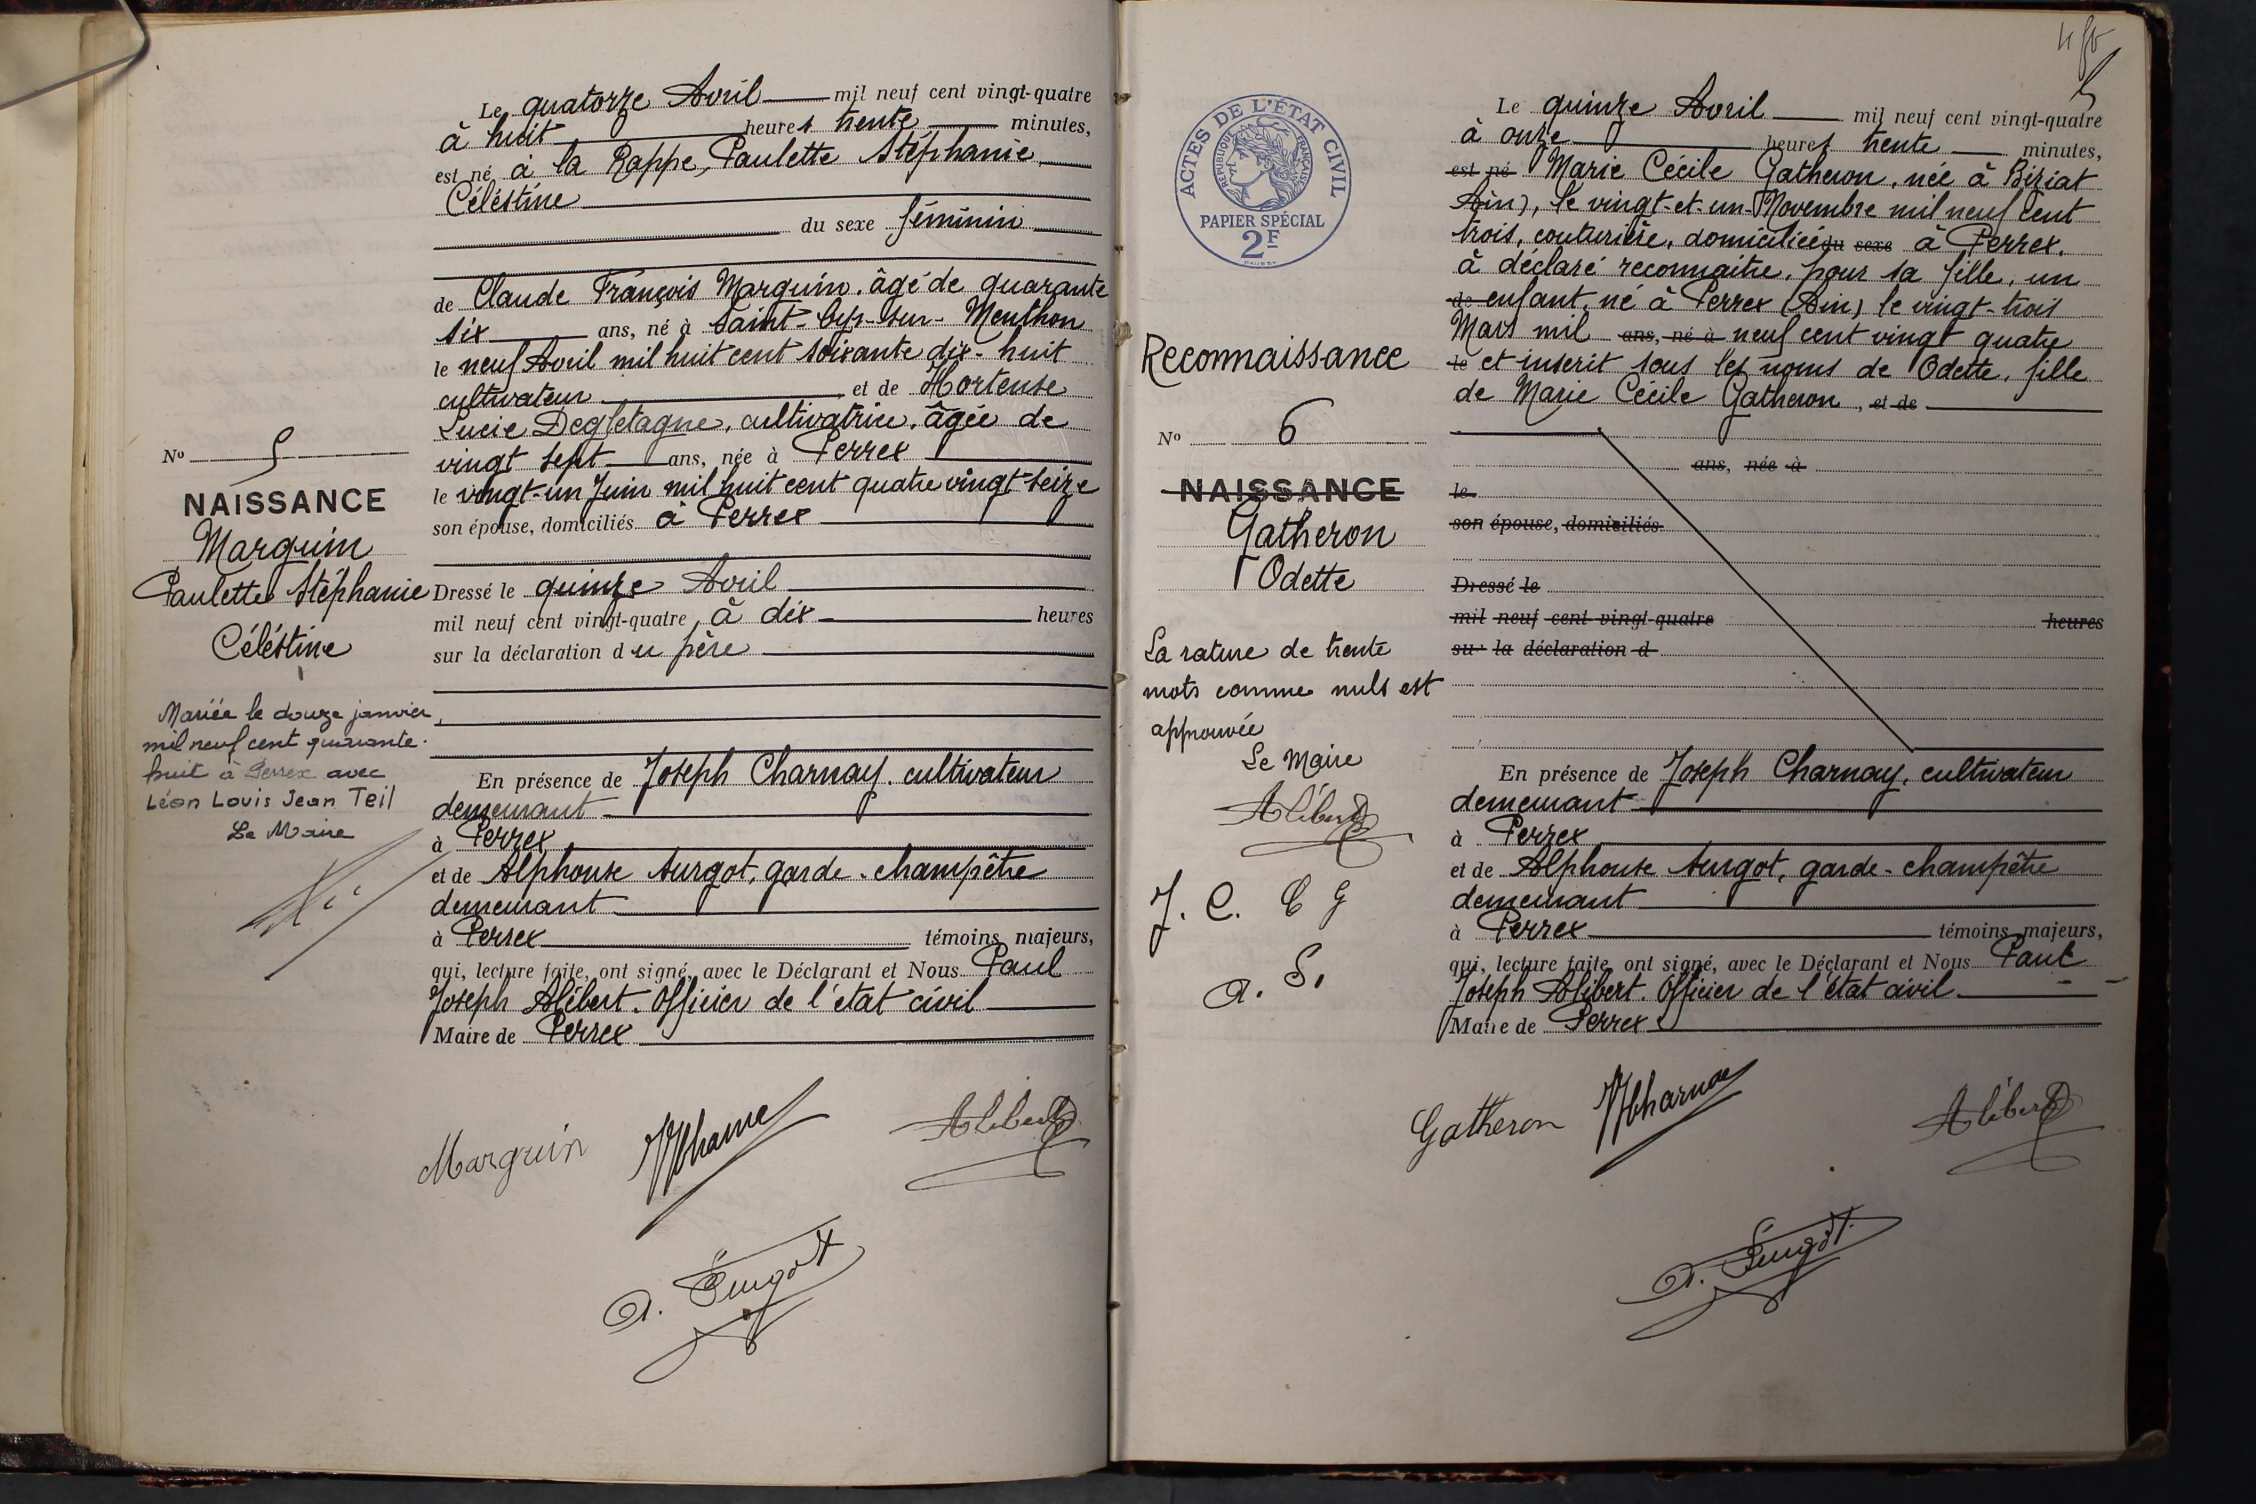 Le quatorze Avril mil neuf cent vingt-quatre
à huit heures trente minutes,
est né à la Rappe, Paulette Stéphanie
Céléstine
du sexe féminin
de Claude François Marguin, âgé de quarante
six ans, né à Saint-Cyr-sur-Menthon
le neuf Avril mil huit cent soixante dix-huit
cultivateur et de Hortense
Lucie Degletagne, cultivatrice, âgée de
vingt sept ans, née à Perrex
le vingt-un Juin mil huit cent quatre vingt seize
son épouse, domiciliés à Perrex
Dressé le quinze Avril
mil neuf cent vingt-quatre, à dix heures
sur la déclaration du père
En présence de Joseph Charnay, cultivateur
demeurant
à Perrex
et de Alphonse Surgot, garde-champêtre
demeurant
à Perrex témoins majeurs,
qui, lecture faite, ont signé, avec le Déclarant et Nous Paul
Joseph Alibert, Officier de l'état civil
Maire de Perrex
Marguin
Alibert
No 5
NAISSANCE
Marguin
Paulette Stéphanie
Céléstine
Mariée le douze janvier
mil neuf cent quarante-
huit à Perrex avec
Léon Louis Jean Teil
Le Maire
ACTES DE L'ÉTAT CIVIL
RÉPUBLIQUE FRANÇAISE
PAPIER SPÉCIAL
2F
Reconnaissance
No 6
NAISSANCE
Gatheron
Odette
La rature de trente
mots comme nuls est
approuvée
Le Maire
Alibert
J. C. C G
A. S.
Le quinze Avril mil neuf cent vingt-quatre
à onze heures trente minutes,
est né Marie Cécile Gatheron, née à Biziat
Ain), le vingt-et-un-Novembre mil neuf cent
trois, couturière, domiciliée du sexe à Perrex,
à déclaré reconnaitre, pour sa fille, un
de enfant, né à Perrex (Ain) le vingt-trois
Mars mil ans, né à neuf cent vingt quatre
le et inscrit sous les noms de Odette, fille
de Marie Cécile Gatheron, et de
ans, née à
le
son épouse, domiciliés
Dressé le
mil neuf cent vingt-quatre heures
sur la déclaration d
En présence de Joseph Charnay, cultivateur
demeurant
à Perrex
et de Alphonse Surgot, garde-champêtre
demeurant
à Perrex témoins majeurs,
qui, lecture faite, ont signé, avec le Déclarant et Nous Paul
Joseph Alibert, Officier de l'état civil
Maire de Perrex
Gatheron JCharnay Alibert
A. Surgot